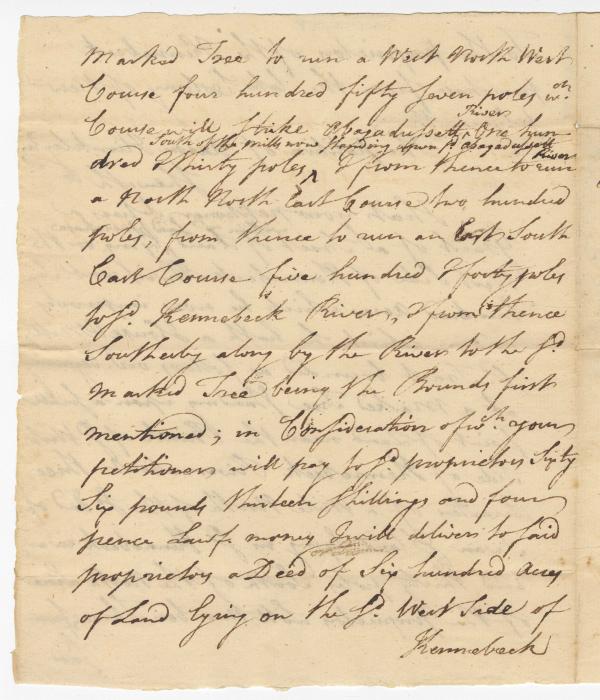 Marked Tree to run a West North West
Course four hundred fifty seven poles wch.
River
Course will strike Abagadussett ^ One hun
South of the mills now standing upon sd. Abagadussett River
dred & thirty poles ^ & from thence to run
a North North East Course two hundred
poles, from thence to run an East South
East Course five hundred & forty poles
to sd. Kennebeck River, & from thence
Southerly along by the River to the sd.
marked Tree being the Bounds first
mentioned; in Consideration of wch. your
petitioners will pay to sd. proprietors Sixty
Six pounds thirteen shillings and four
pence Lawf. money & will deliver to said
proprietors a Deed of Six hundred Acres
of Land lying on the sd. West Side of
Kennebeck